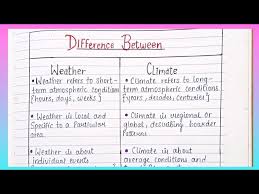 Difference Between
Weather
Climate
• Weather refers to short-
term atmospheric conditions
[hours, days, weeks]
• Climate refers to long-
term atmospheric conditions
[years, decades, centuries]
• Weather is local and
Specific to a Particular
area
• Climate is regional or
global, describing boarder
Patterns
• Weather is about
individual events
• Climate is about
average conditions and